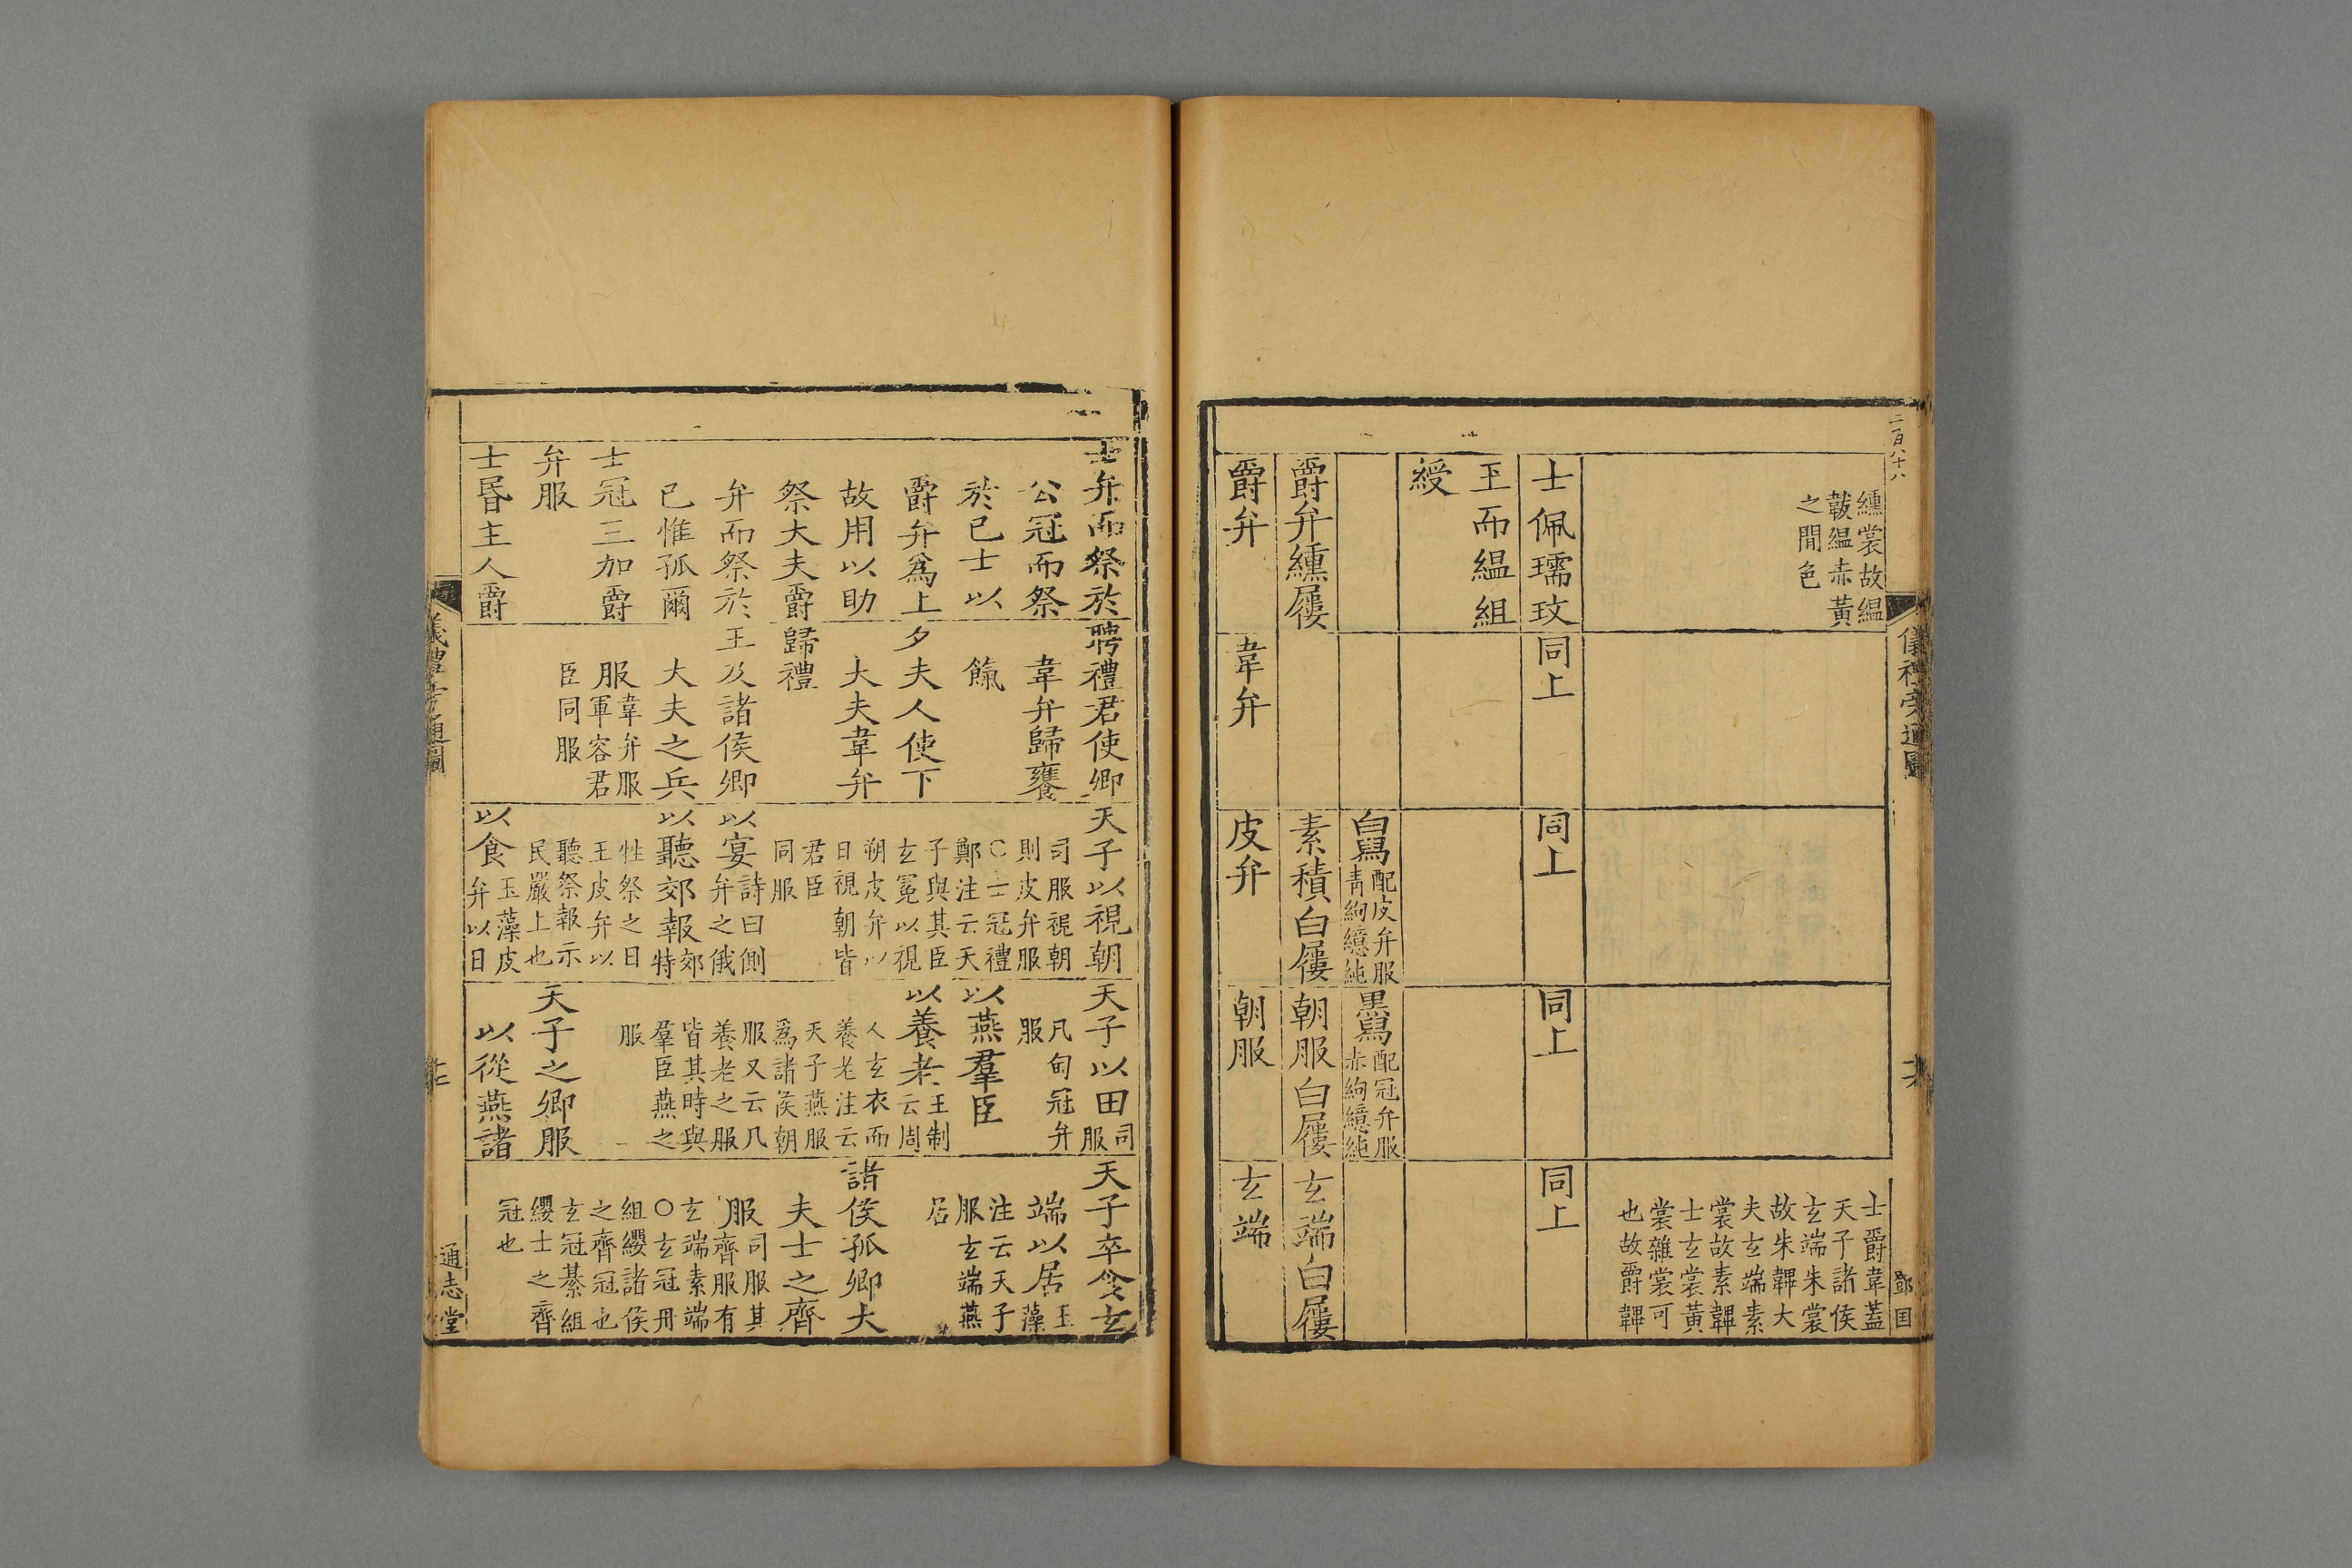 二百八十八
儀禮旁通圖
鄧国
纁裳故緼
韍緼赤黃
之閒色
士爵韋蓋
天子諸侯
玄端朱裳
故朱韠大
夫玄端素
裳故素韠
士玄裳黃
裳雜裳可
也故爵韠
士佩瓀玟
同上
同上
同上
同上
玉而緼組
綬
白舄配皮弁服
青絇繶純
黑舄配冠弁服
赤絇繶純
爵弁纁屨
素積白屨
朝服白屨
玄端白屨
爵弁
韋弁
皮弁
朝服
玄端
士弁而祭於
公冠而祭
於已士以
爵弁爲上
故用以助
祭大夫爵
弁而祭於
已惟孤爾
士冠三加爵
弁服
士昬主人爵
聘禮君使卿
韋弁歸饔
餼
夕夫人使下
大夫韋弁
歸禮
王及諸侯卿
大夫之兵
服韋弁服
軍容君
臣同服
天子以視朝
司服視朝
則皮弁服
○士冠禮
鄭注云天
子與其臣
玄冕以視
朔皮弁以
日視朝皆
君臣
同服
以宴詩曰側
弁之俄
以聽郊報郊
特
牲祭之日
王皮弁以
聽祭報示
民嚴上也
以食玉藻皮
弁以日
天子以田司
服
凡甸冠弁
服
以燕羣臣
以養老王制
云周
人玄衣而
養老注云
天子燕服
爲諸侯朝
服又云凡
養老之服
皆其時與
羣臣燕之
服
天子之卿服
以從燕諸
天子卒食玄
端以居玉
藻
注云天子
服玄端燕
居
諸侯孤卿大
夫士之齊
服司服其
齊服有
玄端素端
○玄冠丹
組纓諸侯
之齊冠也
玄冠綦組
纓士之齊
冠也
儀禮旁通圖
通志堂